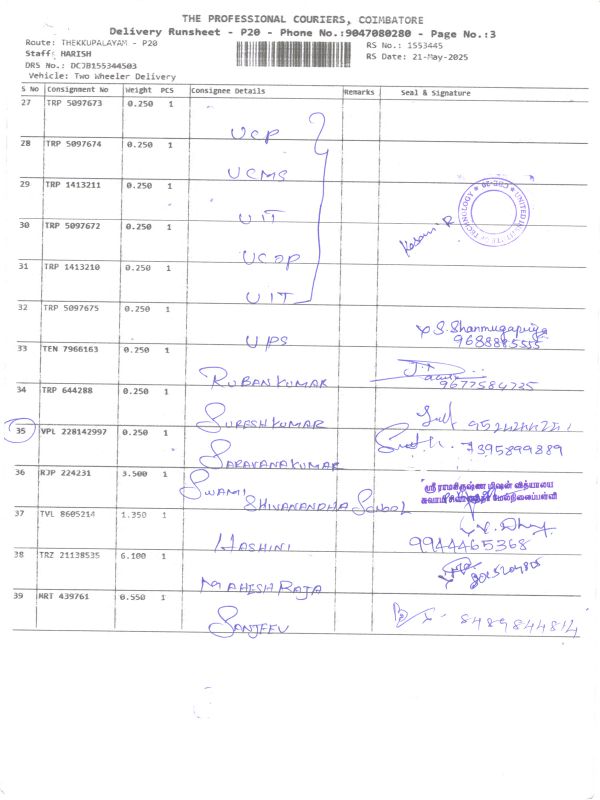 THE PROFESSIONAL COURIERS, COIMBATORE
Delivery Runsheet - P20 - Phone No.:9047080280 - Page No.:3
Route: THEKKUPALAYAM - P20
RS No.: 1553445
Staff: HARISH
RS Date: 21-May-2025
DRS No.: DCJB155344503
Vehicle: Two Wheeler Delivery
S No Consignment No Weight PCS Consignee Details Remarks Seal & Signature
27 TRP 5097673 0.250 1
UCP
28 TRP 5097674 0.250 1
UCMS
29 TRP 1413211 0.250 1
UIT
30 TRP 5097672 0.250 1
UCOP
31 TRP 1413210 0.250 1
UIT
32 TRP 5097675 0.250 1
UPS
S. Shanmugapriya
9688885555
33 TEN 7966163 0.250 1
RUBANKUMAR
9677584735
34 TRP 644288 0.250 1
SURESHKUMAR
35 VPL 228142997 0.250 1
SARAVANAKUMAR
7395899889
36 RJP 224231 3.500 1
SWAMI
SHIVANANDHA SCHOOL
ஸ்ரீ ராமகிருஷ்ண மிஷன் வித்யாலய
37 TVL 8605214 1.350 1
HASHINI
9944465368
38 TRZ 21138535 6.100 1
MAHESH RAJA
39 MRT 439761 0.550 1
SANJEEV
8489844814